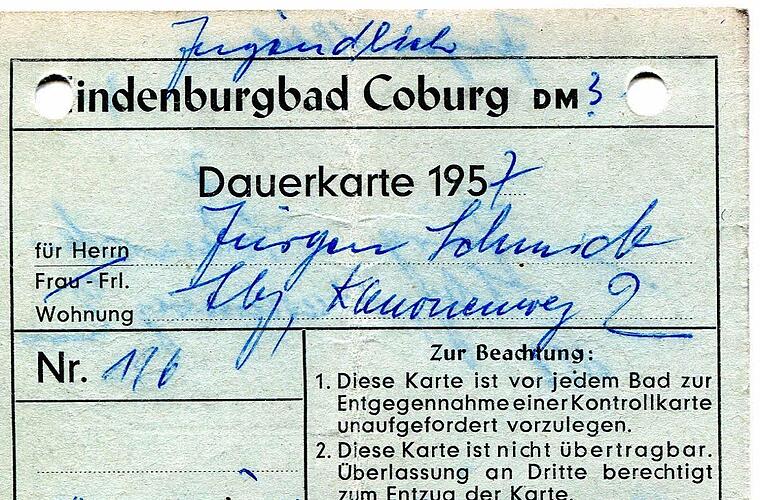 Jugendlich
indenburgbad Coburg DM 3
Dauerkarte 1957
für Herrn Jürgen
Frau - Frl.
Wohnung Cbg, Kanonenweg 2
Nr. 116
Zur Beachtung:
1. Diese Karte ist vor jedem Bad zur
Entgegennahme einer Kontrollkarte
unaufgefordert vorzulegen.
2. Diese Karte ist nicht übertragbar.
Überlassung an Dritte berechtigt
zum Entzug der Karte.